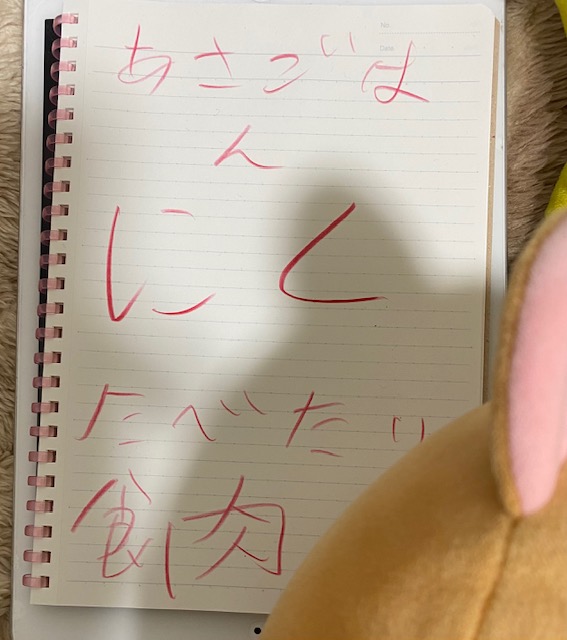 No.
Date
あさごは
ん
にく
たべたい
食肉